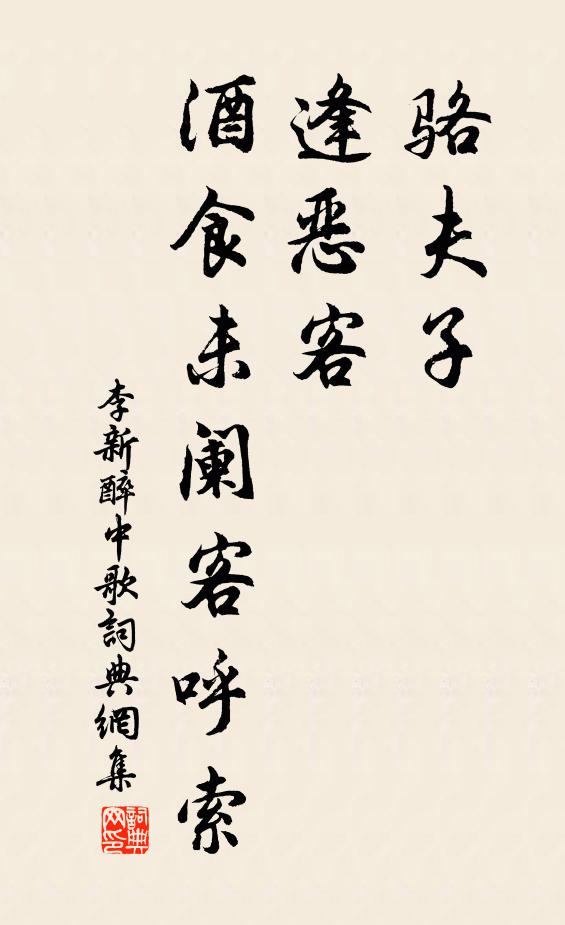 骆夫子
逢恶客
酒食未阑客呼索
李新醉中歌詞典網集
詞典
网印